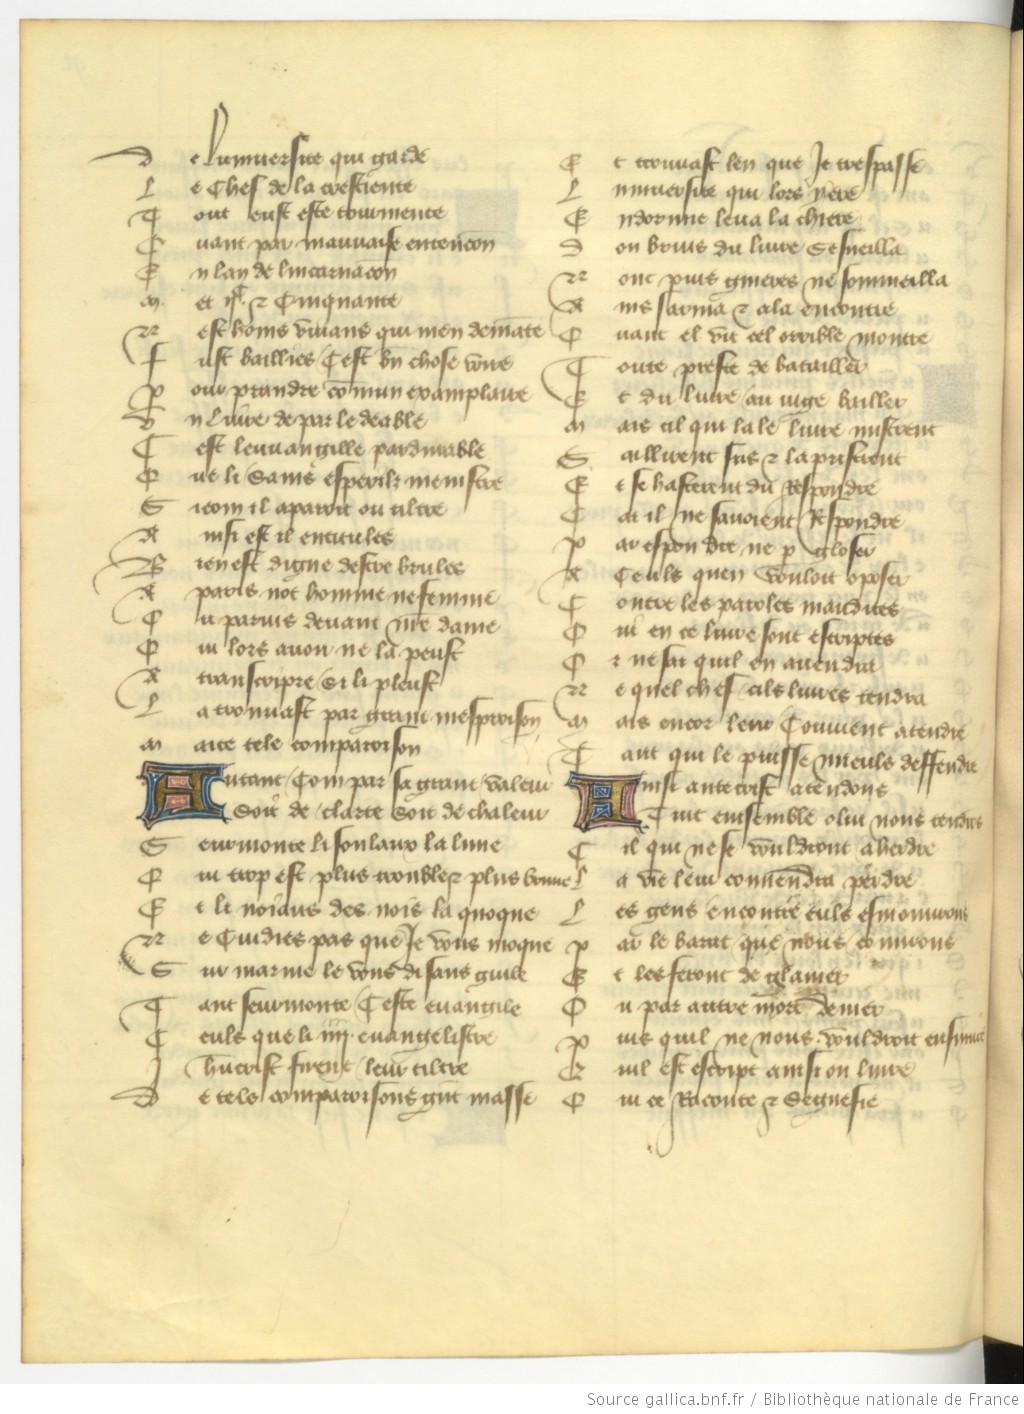 De luniuersite qui garde
Le Chef de la crestiente
Tout eust este tourmente
Quant par mauuaise entencon
En lan de lincarnacon
M et ijc z Cinquante
Nest homs viuans qui men demāte
Fust baillies Cest bn chose voire
Pour prandre cōmun exemplaire
Vn liure de par le deable
Cest leuuangille pardurable
Que li Sains esperilz menistre
Sicom il aparoit ou tiltre
Ainsi est il entitules
Bien est digne destre brules
A paris not homme ne femme
Ou paruis deuant nre dame
Qui lors auoir ne la peust
A transcripre si li pleust
La trouuast par grant mesprison
Mainte tele comparoison
Autant Com par sa grant valeur
Soit de clarte Soit de chaleur
Seurmonte li solaux la lune
Qui trop est plus trouble z plus brune
Et li noiaus des nois la quoque
Ne Cuidies pas que Je vous moque
Sur marme le vous di sans guile
Tant seurmonte Ceste euangile
Ceuls que li iiij euangelistre
Jhucrist firent leur tiltre
De tels comparoisons gnt masse
Et trouuast len que Je trespasse
Luniuersite qui lors yere
Endormie leua la chiere
Dou bruis du liure Sesueilla
Nonc puis gueres ne sommeilla
Ains sarma z ala encontre
Quant el vit cel orrible monstre
Toute preste de batailler
Et du liure au iuge bailler
Mais cil qui la le liure mistrent
Saillirent sus z la pristrent
Et se hasterent du Respondre
Car il ne sauoient Respondre
Par espondre ne p gloser
A Ceuls quen vouloit oposer
Contre les paroles maudites
Qui en ce liure sont escriptes
Or ne sai quil en auendra
Ne quel chef cils liures tendra
Mais encor leur Conuient atendre
Tant qui le puisse mieuls deffendre
Ainsi antecrist atendons
Tuit ensemble a lui nous tendons
Cil qui ne se vouldront aherdre
La vie leur conuendra perdre
Les gens encontre euls esmouurons
Par le barat que nous couurons
Et les feront de glaiuer
Ou par autre mort deuier
Puis quil ne nous vouldroit ensiuir
Quil est escript ainsi ou liure
Qui ce Raconte z Segnefie